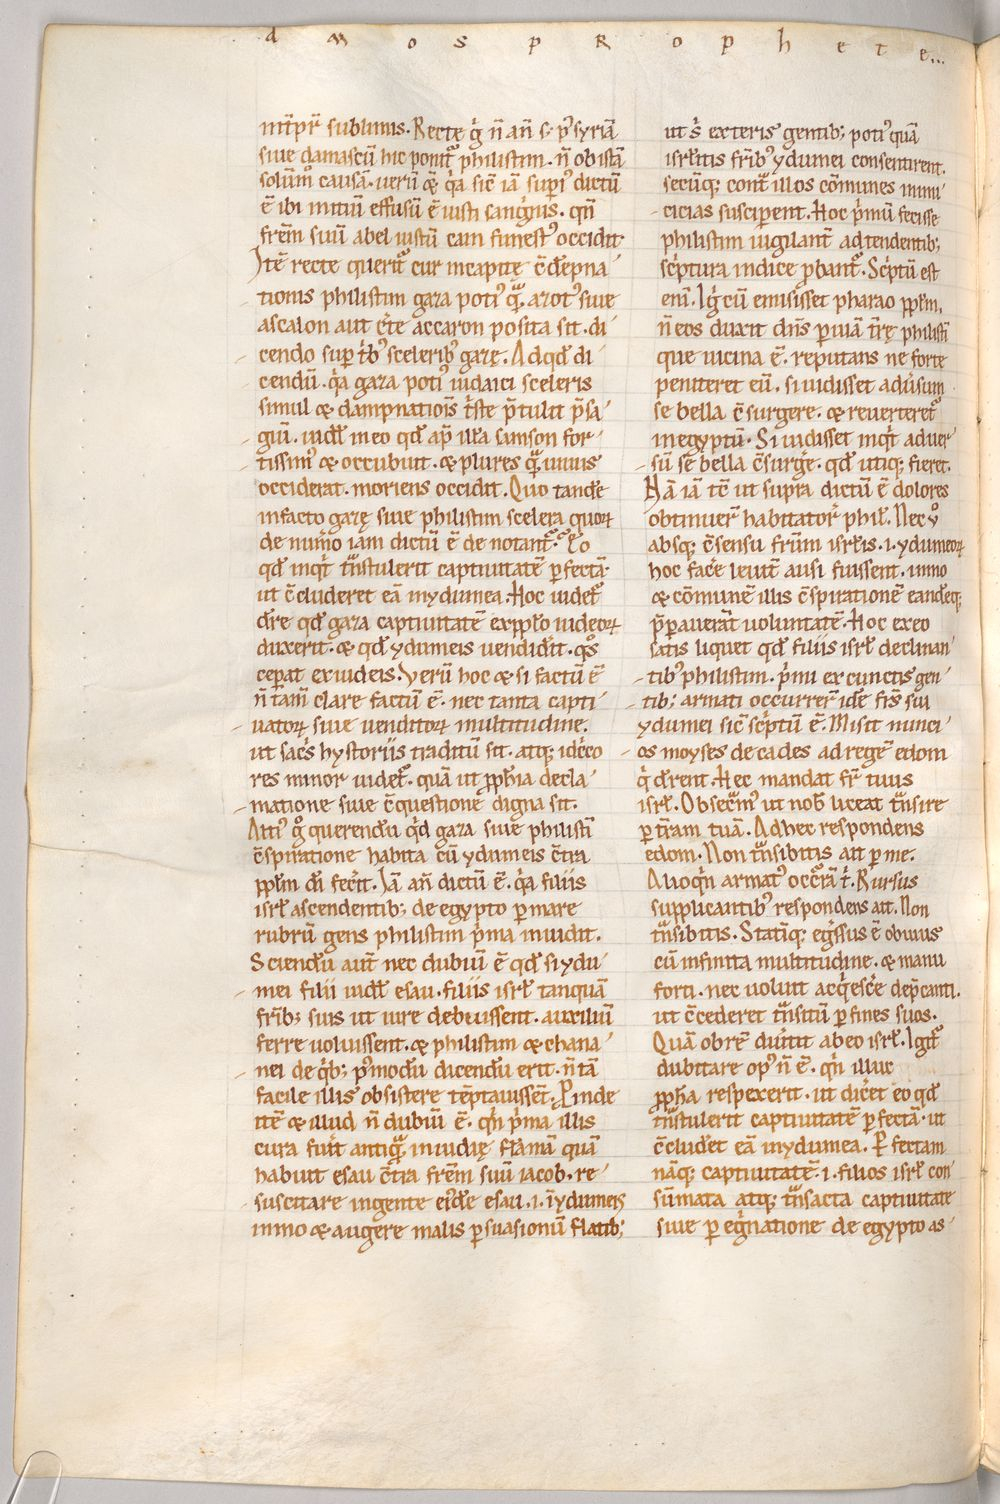 a m o s p R o p h e t e...
int̄p̄r sublimis. Recte g̊ n̄ an̄ s; p᷒ syriā
siue damascū hic ponit᷑ philistim. n̄ ob istā
solūm̊ causā. uerū & q̓a sic̄ iā sup̄i᷒ dictū
ē ibi initiū effusū ē iusti sangu̓is. qn̄
frēm suū abel iustū cain funest᷒ occidit
Itē recte querit᷑ cur incapite c̄dēpna
tionis philistim gaza poti᷒ q̄ᷓ. azot᷒ siue
ascalon aut c̓te accaron posita sit. di
cendo sup t̓b᷒ scelerib᷒ gazę. Ad qd̄ di
cendū. q̓a gaza poti᷒ iudaici sceleris
simul & dampnatiōīs t̓ste p̄tulit p̄sa
giū. uidel̄ in eo qd̄ ap̄ illa samson for
tissim᷒ & occubuit. & plures q̄ᷓ uiuus
occiderat. moriens occidit. Quo tandē
infacto gazę siue philistim scelera quoꝝ
de num̓o iam dictū ē denotant᷑. Eo
qd̄ inq̓t tᷓnstulerit captiuitatē ꝑfectā.
ut c̄cluderet eā inydumea. Hoc uidet᷑
dr̄e qd̄ gaza captiuitatē expp̄lo iudeoꝝ
duxerit. & qd̄ ydumeis uendid̓it. q̊s
cep̄at ex iudeis. Verū hoc & si factū ē
n̄ tam̄ clare factū ē. nec tanta capti
uatoꝝ siue uenditoꝝ multitudine.
ut sac̓s hystoriis traditū sit. atq; idc̓co
res minor uidet᷑. quā ut pp̄hīa decla
matione siue c̄questione digna sit.
Alti᷒ g̊ querendū q̓d gaza siue philistī
c̄spiratione habita cū ydumeis c̄tra
pp̄lm dī fec̓it. Iā an̄ dictū ē. q̓a filiis
isrl̄ ascendentib; de egypto ꝑ mare
rubrū gens philistim p̓ma inuidit.
Sciendū aut̄ nec dubiū ē qd̄ si ydu
mei filii uidel̄ esau. filiis isrl̄ tanquā
fr̄ib; suis ut iure debuissent. auxiliū
ferre uoluissent. & philistim & chana
nei de q̓b; p᷒modū dicendū erit. n̄ tā
facile illis obsistere tēptauissēt. Proinde
itē & illud n̄ dubiū ē. qn̄ p̓ma illis
cura fu̓it antiq̄ᷓ inuidię flāmā quā
habuit esau c̄tra frēm suū iacob. re
suscitare ingente ei᷒dē esau. i. ī ydumeis
immo & augere malis ꝑsuasionū flatib;
ut s̓ exteris gentib; poti᷒ quā
isrl̄itis fr̄ib᷒ ydumei consentirent.
secūq; contᷓ illos cōmunes inimi
cicias susciperent. Hoc p̓mū fecisse
philistim uigilant̄ adtendentib;
sc̓ptura indice ꝓbant᷑. Sc̓ptū est
enī. Ig̓ cū emisisset pharao pp̄lm.
n̄ eos duxit dn̄s ꝑ uiā t̄rę philistī
que uicina ē. reputans ne forte
peniteret eū. si uidisset adūsum
se bella c̄surgere. & reuerteret᷑
inegyptū. Si uidisset inq̓t aduer
sū sē bella c̄surg̓e. qd̄ utiq; fieret.
Nā iā tc̄ ut supra dictū ē dolores
obtinuer̄ habitator̄ phil̄. Nec ů
absq; c̄sensu fr̄um isrl̄is. i. ydumeoꝝ
hoc fac̓e leuit̄ ausi fuissent. immo
& cōmunē illis c̄spirationē eandēq;
p̄ꝑauerāt uoluntatē. Hoc ex eo
satis liquet qd̄ filiis isrl̄ declinan
tib᷒ philistim. p̓mi ex cunctis gen
tib; armati occurrer̄ idē fr̄s sui
ydumei sic̄ sc̓ptū ē. Misit nunci
os moyses de cades ad regē edom
q̓ dic̓rent. Hec mandat fr̄ tuus
isrl̄. Obsecram᷒ ut nob̄ liceat tᷓnsire
ꝑ t̄ram tuā. Ad hec respondens
edom. Non tᷓnsibitis ait ꝑ me.
Alioq̓n armat᷒ occ̓rā t̓. Rursus
supplicantib᷒ respondens ait. Non
tᷓnsibitis. Statīq; eg̓ssus ē obuius
cū infinita multitudine. & manu
forti. nec uoluit acq̓esc̓e dep̄canti.
ut c̄cederet tᷓnsitū ꝑ fines suos.
Quā ob rē diu̓tit ab eo isrl̄. Igit᷑
dubitare op᷒ n̄ ē. qn̄ illuc
pp̄ha respexerit. ut dic̓et eo qd̄
tᷓnstulerit captiuitatē ꝑfectā. ut
c̄cludēt eā inydumea. Ꝑfectam
nāq; captiuitatē. i. filios isrl̄ con
sūmata atq; tᷓnsacta captiuitate
siue ꝑeg̓natione de egypto as